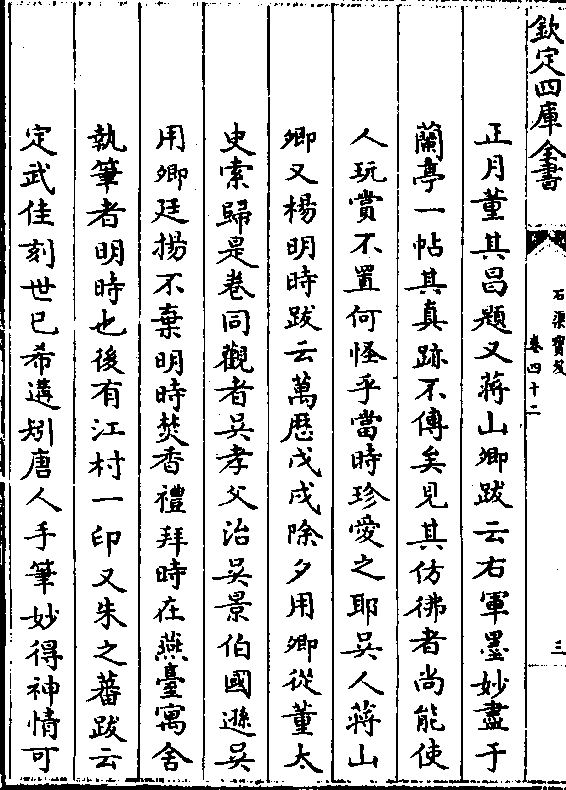 欽定四庫全書
石渠寶笈
卷四十二
三
正月董其昌題又蔣山卿跋云右軍墨妙盡于
蘭亭一帖其真跡不傳矣見其仿彿者尚能使
人玩賞不置何怪乎當時珍愛之耶吳人蔣山
卿又楊明時跋云萬歷戊戌除夕用卿從董太
史索歸是卷同觀者吳孝父治吳景伯國遜吳
用卿廷揚不棄明時焚香禮拜時在燕臺寓舍
執筆者明時也後有江村一印又朱之蕃跋云
定武佳刻世已希遘矧唐人手筆妙得神情可